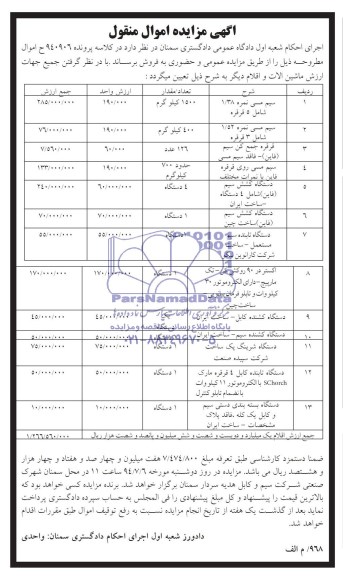 آگهی مزایده اموال منقول
اجرای احکام شعبه اول دادگاه عمومی دادگستری سمنان در نظر دارد در کلاسه پرونده ۹۴۰۹۰۶ ح اموال
مطروحه ذیل را از طریق مزایده عمومی و حضوری به فروش برساند .با در نظر گرفتن جمیع جهات
ارزش ماشین الات و اقلام دیگر به شرح ذیل تعیین میگردد :
ردیف شرح تعداد/مقدار ارزش واحد جمع ارزش
۱ سیم مسی نمره ۱/۳۸ شامل ۵ قرقره ۱۵۰۰ کیلو گرم ۱۹۰/۰۰۰ ۲۸۵/۰۰۰/۰۰۰
۲ سیم مسی نمره ۱/۵۲ شامل ۳ قرقره ۴۰۰ کیلو گرم ۱۹۰/۰۰۰ ۷۶/۰۰۰/۰۰۰
۳ قرقره جمع کن سیم (فاین)- فاقد سیم مسی ۱۲۶ عدد ۶۰/۰۰۰ ۷/۵۶۰/۰۰۰
۴ سیم مسی روی قرقره فاین با نمرات مختلف حدود ۷۰۰ کیلوگرم ۱۹۰/۰۰۰ ۱۳۳/۰۰۰/۰۰۰
۵ دستگاه کشش سیم (فاین)شامل ۴ دستگاه -ساخت ایران ۴ دستگاه ۶۰/۰۰۰/۰۰۰ ۲۴۰/۰۰۰/۰۰۰
۶ دستگاه کشش سیم (فاین)ساخت چین ۱ دستگاه ۷۰/۰۰۰/۰۰۰ ۷۰/۰۰۰/۰۰۰
۷ دستگاه تابنده سیم مستعمل - ساخت شرکت کارآفرین ۱ دستگاه ۵۵/۰۰۰/۰۰۰ ۵۵/۰۰۰/۰۰۰
۸ اکسترودر ۹۰ روکش تک مارپیچ -دارای الکتروموتور ۳۰ کیلو وات و تابلو فرمان ساخت چین ۱ دستگاه ۱۷۰/۰۰۰/۰۰۰ ۱۷۰/۰۰۰/۰۰۰
دستگاه کشنده کابل - ساخت ایران ۴۵/۰۰۰/۰۰۰
۱۰ دستگاه کشنده سیم- ساخت ایران ۵۰/۰۰۰/۰۰۰
۱۱ دستگاه شرینگ پک ساخت شرکت سپیده صنعت ۱ دستگاه ۷۵/۰۰۰/۰۰۰ ۷۵/۰۰۰/۰۰۰
۱۲ دستگاه تابنده کابل ۴ قرقره مارک SChorch با الکتروموتور ۱۱ کیلو وات با انضمام تابلو کنترل ۱ دستگاه ۵۰/۰۰۰/۰۰۰ ۵۰/۰۰۰/۰۰۰
۱۳ دستگاه بسته بندی دستی سیم و کابل یک کله .فاقد پلاک مشخصات - ساخت ایران ۱ دستگاه ۱۰/۰۰۰/۰۰۰ ۱۰/۰۰۰/۰۰۰
جمع ارزش اقلام یک میلیارد و دویست و شصت و شش میلیون و پانصد و شصت هزار ریال ۱/۲۶۶/۵۶۰/۰۰۰
ParsNamadData
پایگاه اطلاع رسانی مناقصه و مزایده
۰۲۱-۸۸۳۴۹۶۷۰-۵
ضمنا دستمزد کارشناسی طبق تعرفه مبلغ ۷/۴۷۴/۸۰۰ هفت میلیون و چهار صد و هفتاد و چهار هزار
و هشتصد ریال می باشد. مزایده در روز دوشنبه مورخه ۹۴/۷/۶ ساعت ۱۱ در محل سمنان شهرک
صنعتی شرکت سیم و کابل هدیه سردار سمنان برگزار خواهد شد. برنده مزایده کسی خواهد بود که
بالاترین قیمت را پیشنهاد و کل مبلغ پیشنهادی را فی المجلس به حساب سپرده دادگستری پرداخت
نماید بعد از گذشت یک هفته از تاریخ انجام مزایده نسبت به رفع توقیف اموال طبق مقررات اقدام
خواهد شد.
دادورز شعبه اول اجرای احکام دادگستری سمنان: واحدی
۹۶۸/ م الف